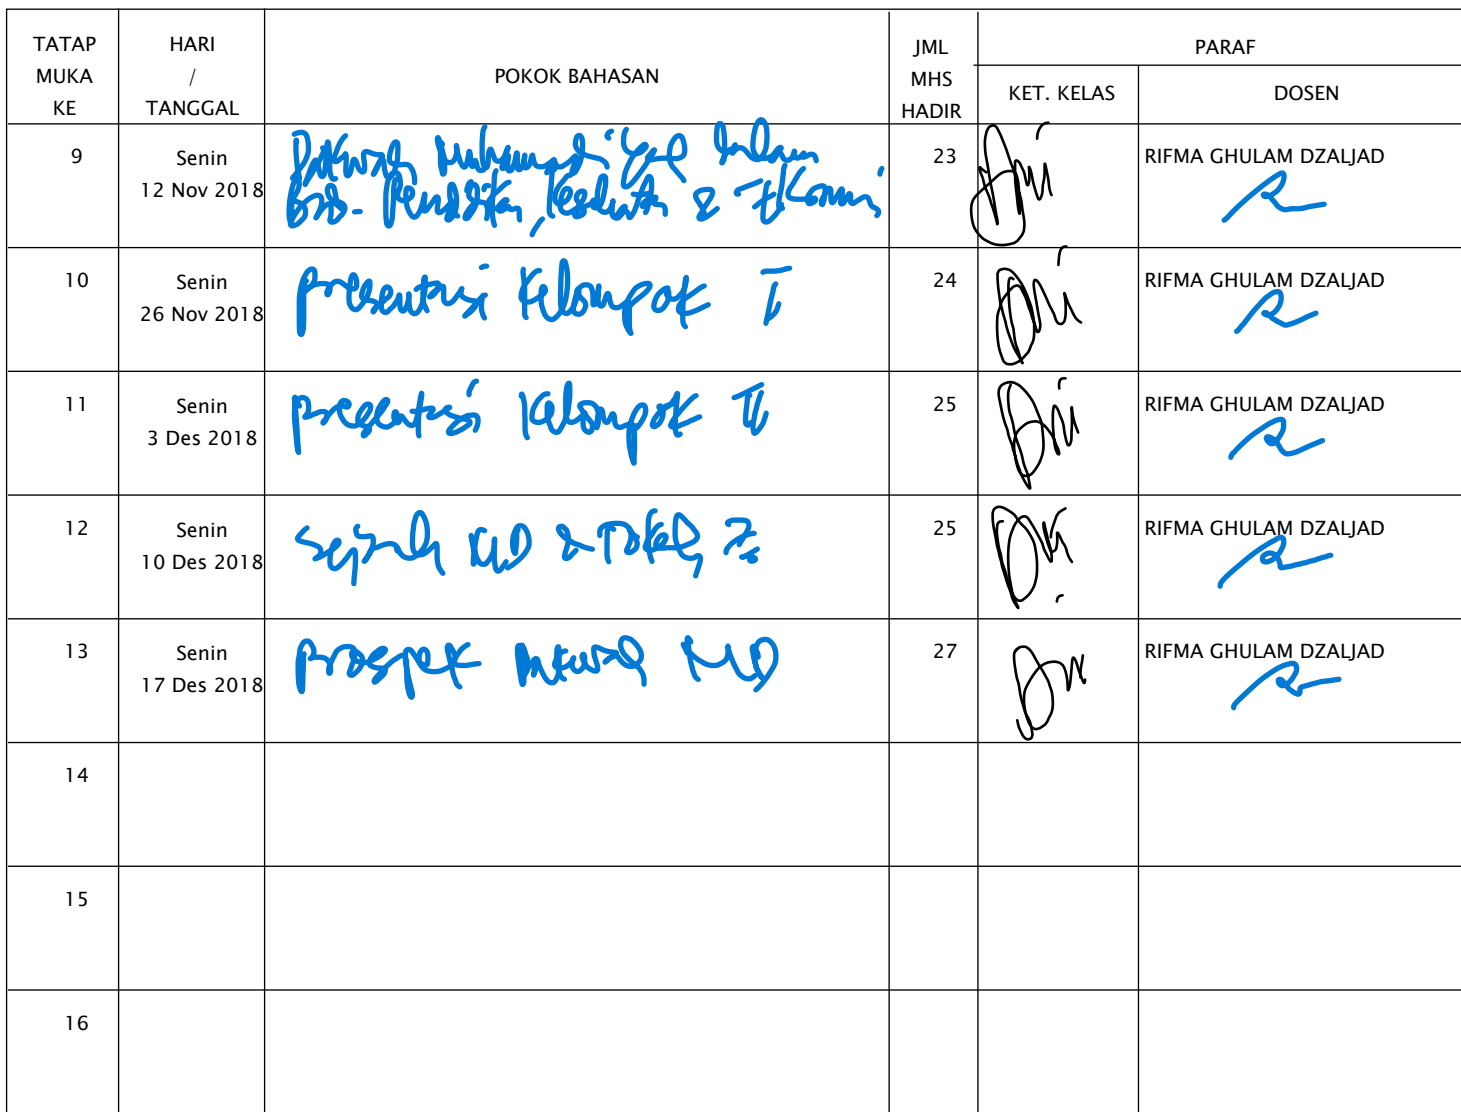 TATAP MUKA KE
HARI / TANGGAL
POKOK BAHASAN
JML MHS HADIR
PARAF
KET. KELAS
DOSEN
9
Senin
12 Nov 2018
Dakwah Muhammadiyah dalam
Bid. Pendidikan, Kesehatan & Ekonomi
23
RIFMA GHULAM DZALJAD
10
Senin
26 Nov 2018
presentasi Kelompok I
24
RIFMA GHULAM DZALJAD
11
Senin
3 Des 2018
presentasi Kelompok II
25
RIFMA GHULAM DZALJAD
12
Senin
10 Des 2018
Sejarah MD &
25
RIFMA GHULAM DZALJAD
13
Senin
17 Des 2018
prospek Dakwah MD
27
RIFMA GHULAM DZALJAD
14
15
16